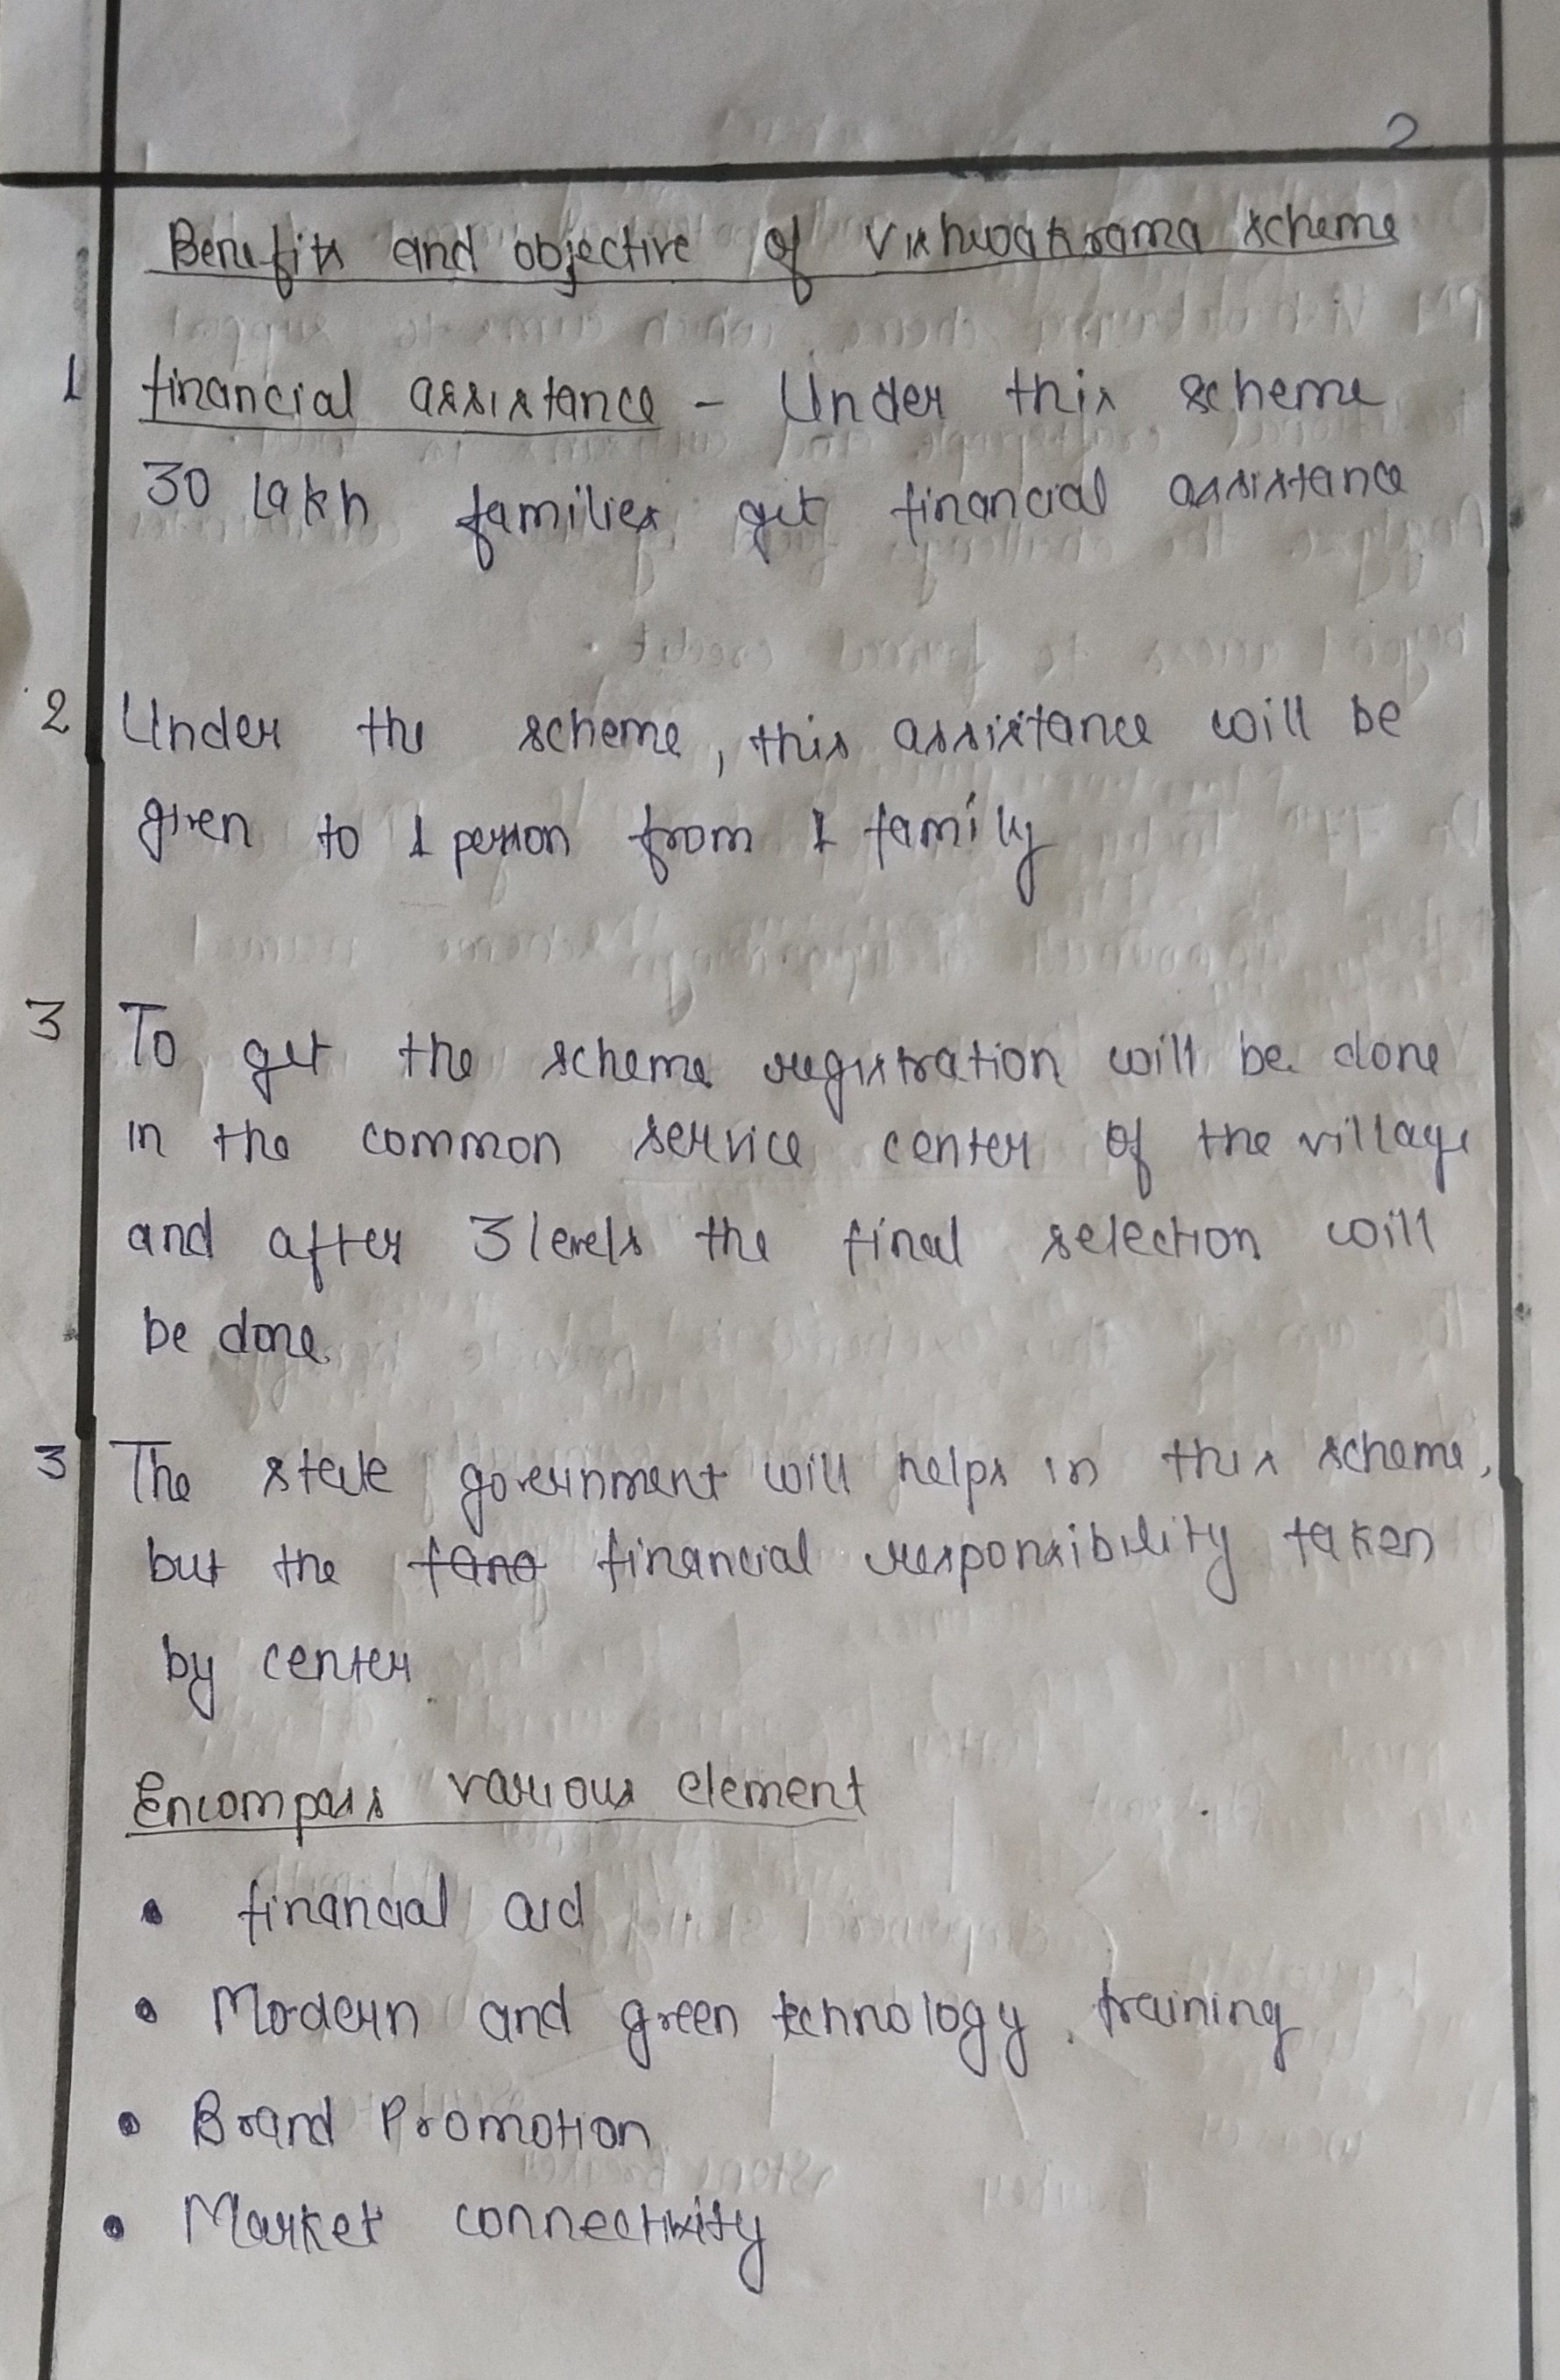 2
Benefits and objective of Vishwakrama scheme
1 financial assistance - Under this scheme
30 lakh families get financial assistance
2 Under the scheme, this assistance will be
given to 1 person from 1 family
3 To get the scheme registration will be done
in the common service center of the village
and after 3 levels the final selection will
be done.
3 The state government will helps in this scheme,
but the fana financial responsibility taken
by center.
Encompass various element
• financial aid
• Modern and green technology training
• Brand Promotion
• Market connectivity